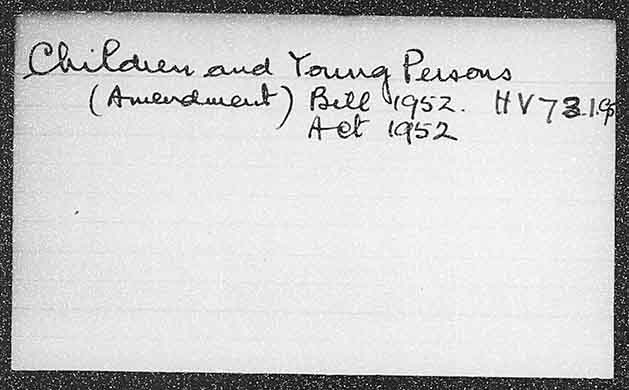 Children and Young Persons
(Amendment) Bill 1952. HV 73
Act 1952